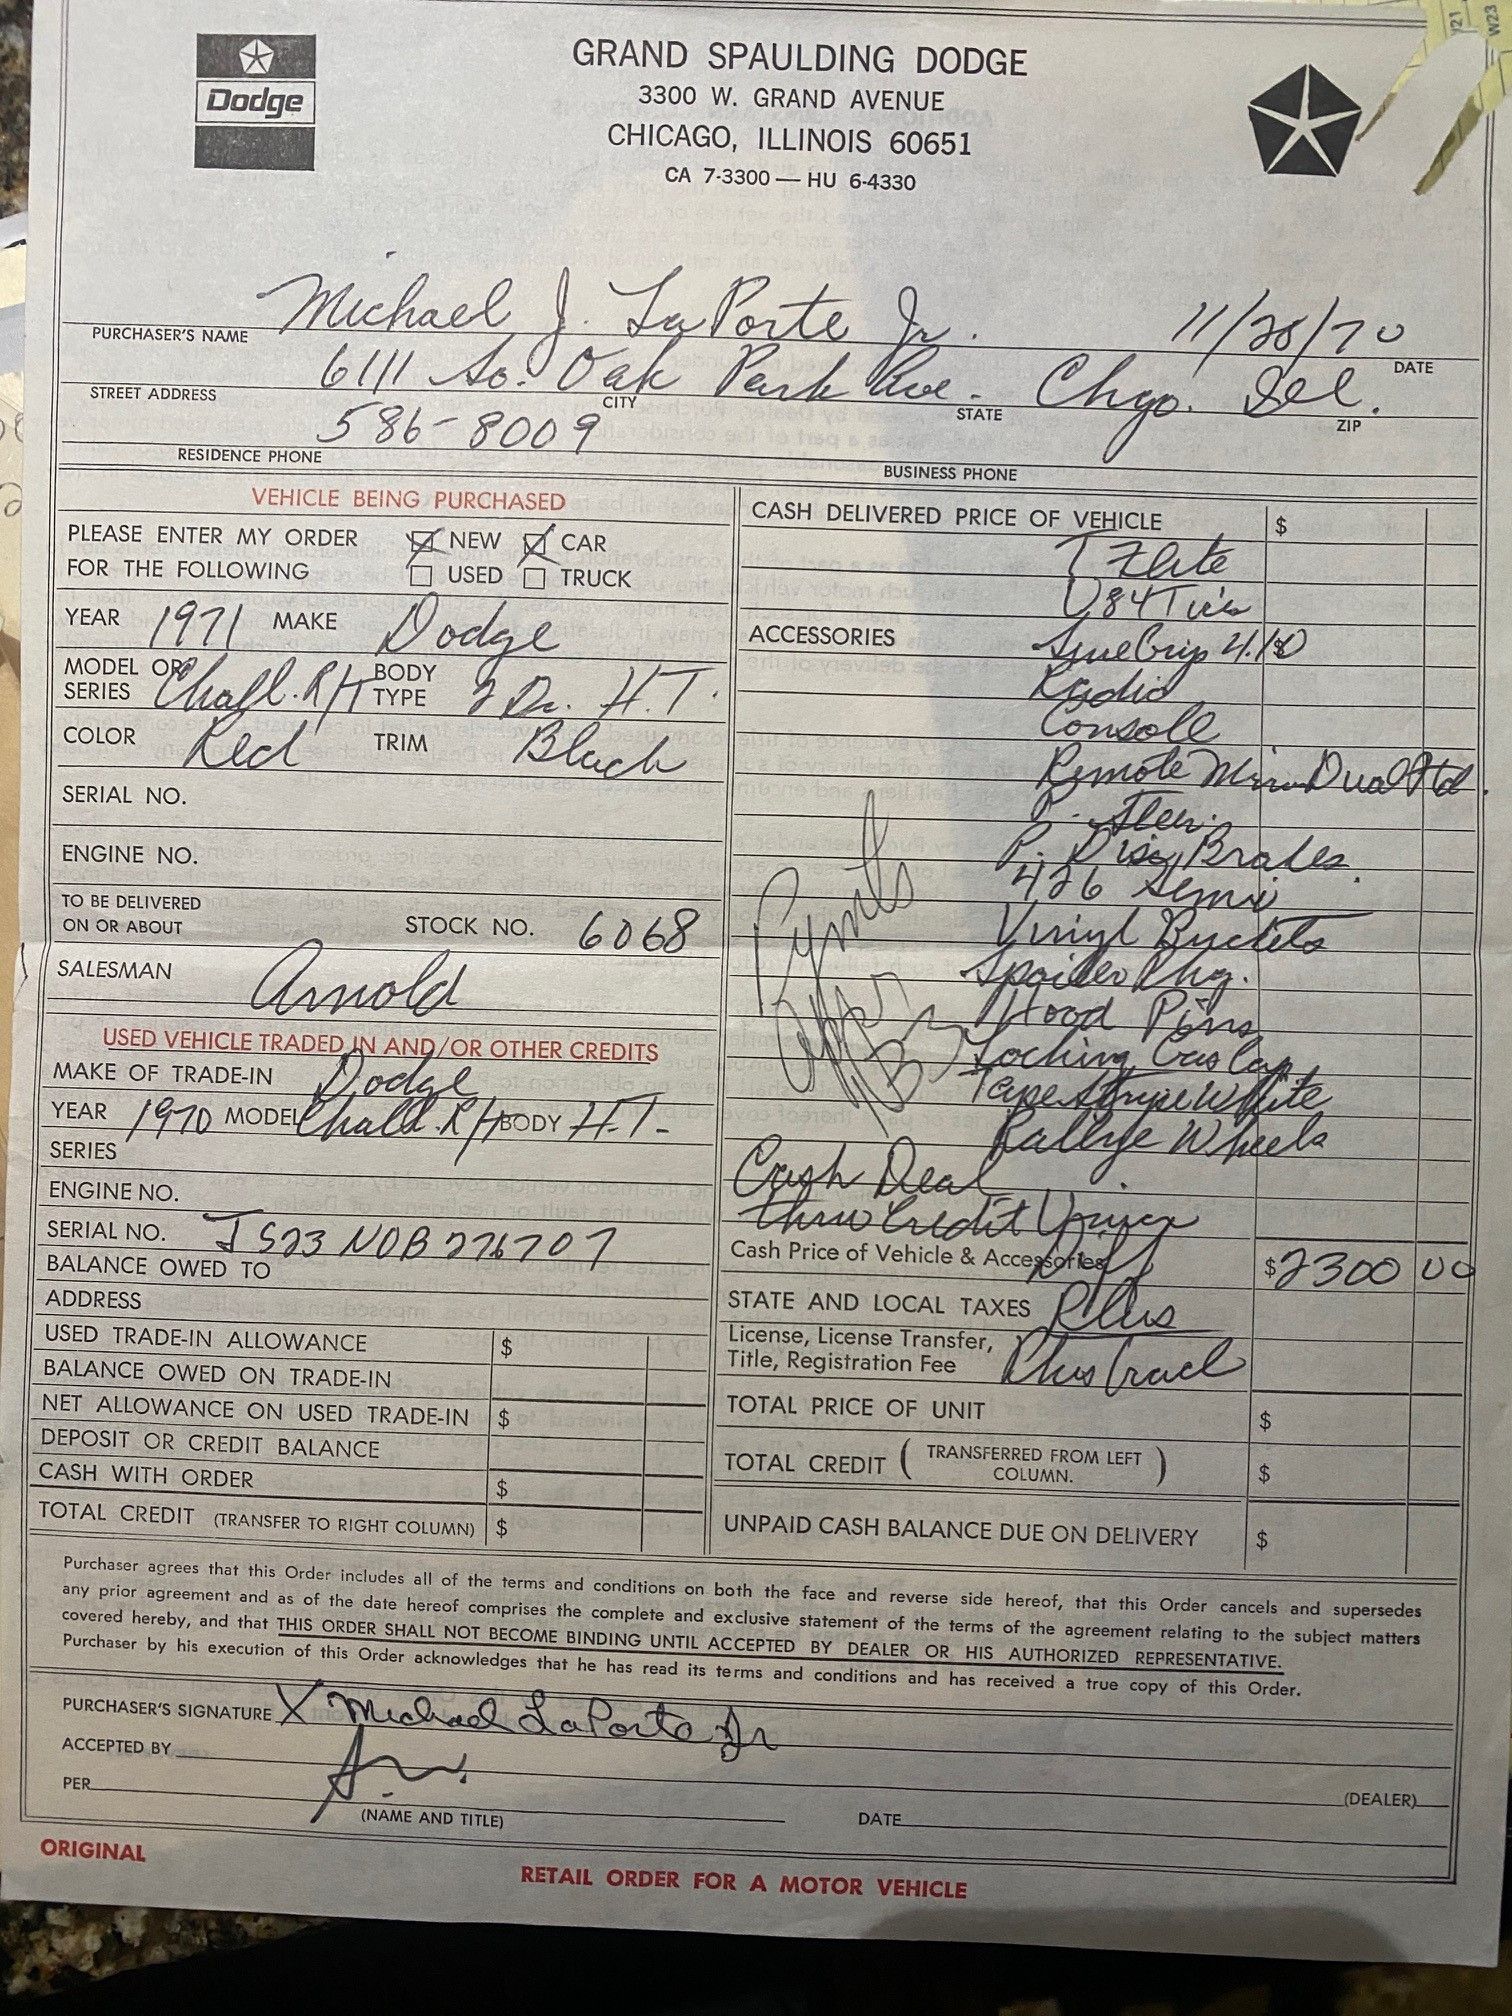 Dodge
GRAND SPAULDING DODGE
3300 W. GRAND AVENUE
CHICAGO, ILLINOIS 60651
CA 7-3300 — HU 6-4330
PURCHASER'S NAME Michael J. LaPorte Jr. 11/28/70 DATE
STREET ADDRESS 6111 So. Oak Park Ave. Chgo. Ill.
CITY STATE ZIP
586-8009
RESIDENCE PHONE BUSINESS PHONE
VEHICLE BEING PURCHASED
PLEASE ENTER MY ORDER NEW CAR
FOR THE FOLLOWING USED TRUCK
YEAR 1971 MAKE Dodge
MODEL OR SERIES Chall. R/T BODY TYPE 2 Dr. H.T.
COLOR Red TRIM Black
SERIAL NO.
ENGINE NO.
TO BE DELIVERED
ON OR ABOUT STOCK NO. 6068
SALESMAN Arnold
USED VEHICLE TRADED IN AND/OR OTHER CREDITS
MAKE OF TRADE-IN Dodge
YEAR 1970 MODEL Chall. R/T BODY H.T.
SERIES
ENGINE NO.
SERIAL NO. JS23N0B276707
BALANCE OWED TO
ADDRESS
USED TRADE-IN ALLOWANCE $
BALANCE OWED ON TRADE-IN
NET ALLOWANCE ON USED TRADE-IN $
DEPOSIT OR CREDIT BALANCE
CASH WITH ORDER $
TOTAL CREDIT (TRANSFER TO RIGHT COLUMN) $
CASH DELIVERED PRICE OF VEHICLE $
T Flite
ACCESSORIES
Sure Grip 4.10
Radio
Console
Remote Mirr Dual Ptd.
P. Steer.
P. Disc Brakes.
426 Hemi
Vinyl Buckets
Spoiler Pkg.
Hood Pins
Locking Gas Cap
Tape Stripe White
Rallye Wheels
Pymts
Cash Deal
thru Credit Union
Cash Price of Vehicle & Accessories $2300 00
STATE AND LOCAL TAXES Plus
License, License Transfer,
Title, Registration Fee Plus Trade
TOTAL PRICE OF UNIT $
TOTAL CREDIT (TRANSFERRED FROM LEFT COLUMN.) $
UNPAID CASH BALANCE DUE ON DELIVERY $
Purchaser agrees that this Order includes all of the terms and conditions on both the face and reverse side hereof, that this Order cancels and supersedes
any prior agreement and as of the date hereof comprises the complete and exclusive statement of the terms of the agreement relating to the subject matters
covered hereby, and that THIS ORDER SHALL NOT BECOME BINDING UNTIL ACCEPTED BY DEALER OR HIS AUTHORIZED REPRESENTATIVE.
Purchaser by his execution of this Order acknowledges that he has read its terms and conditions and has received a true copy of this Order.
PURCHASER'S SIGNATURE X Michael LaPorte Jr
ACCEPTED BY
PER (DEALER)
(NAME AND TITLE) DATE
ORIGINAL
RETAIL ORDER FOR A MOTOR VEHICLE